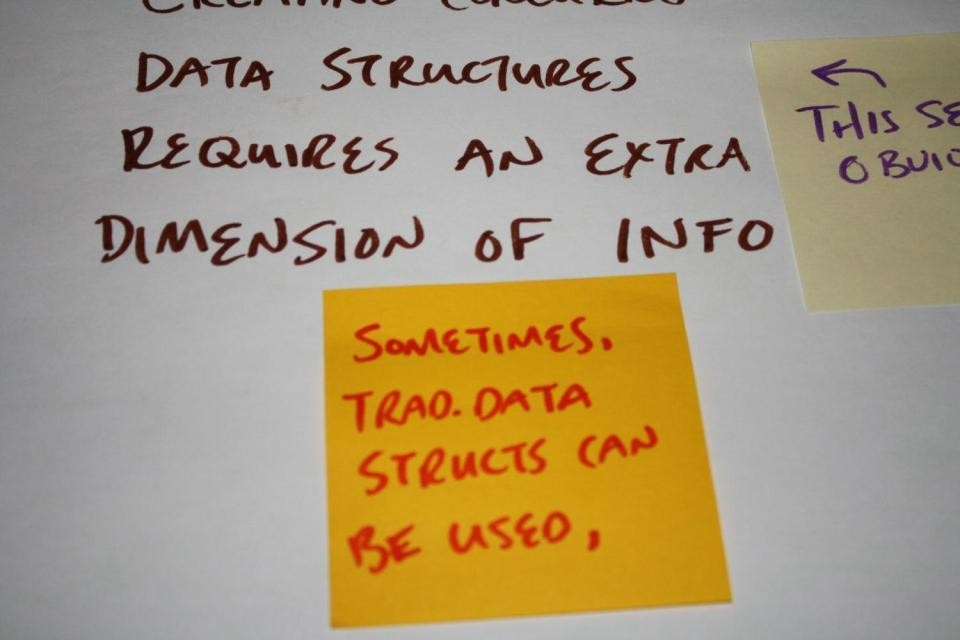 CREATING
DATA STRUCTURES
REQUIRES AN EXTRA
DIMENSION OF INFO
THIS
SOMETIMES,
TRAD. DATA
STRUCTS CAN
BE USED,